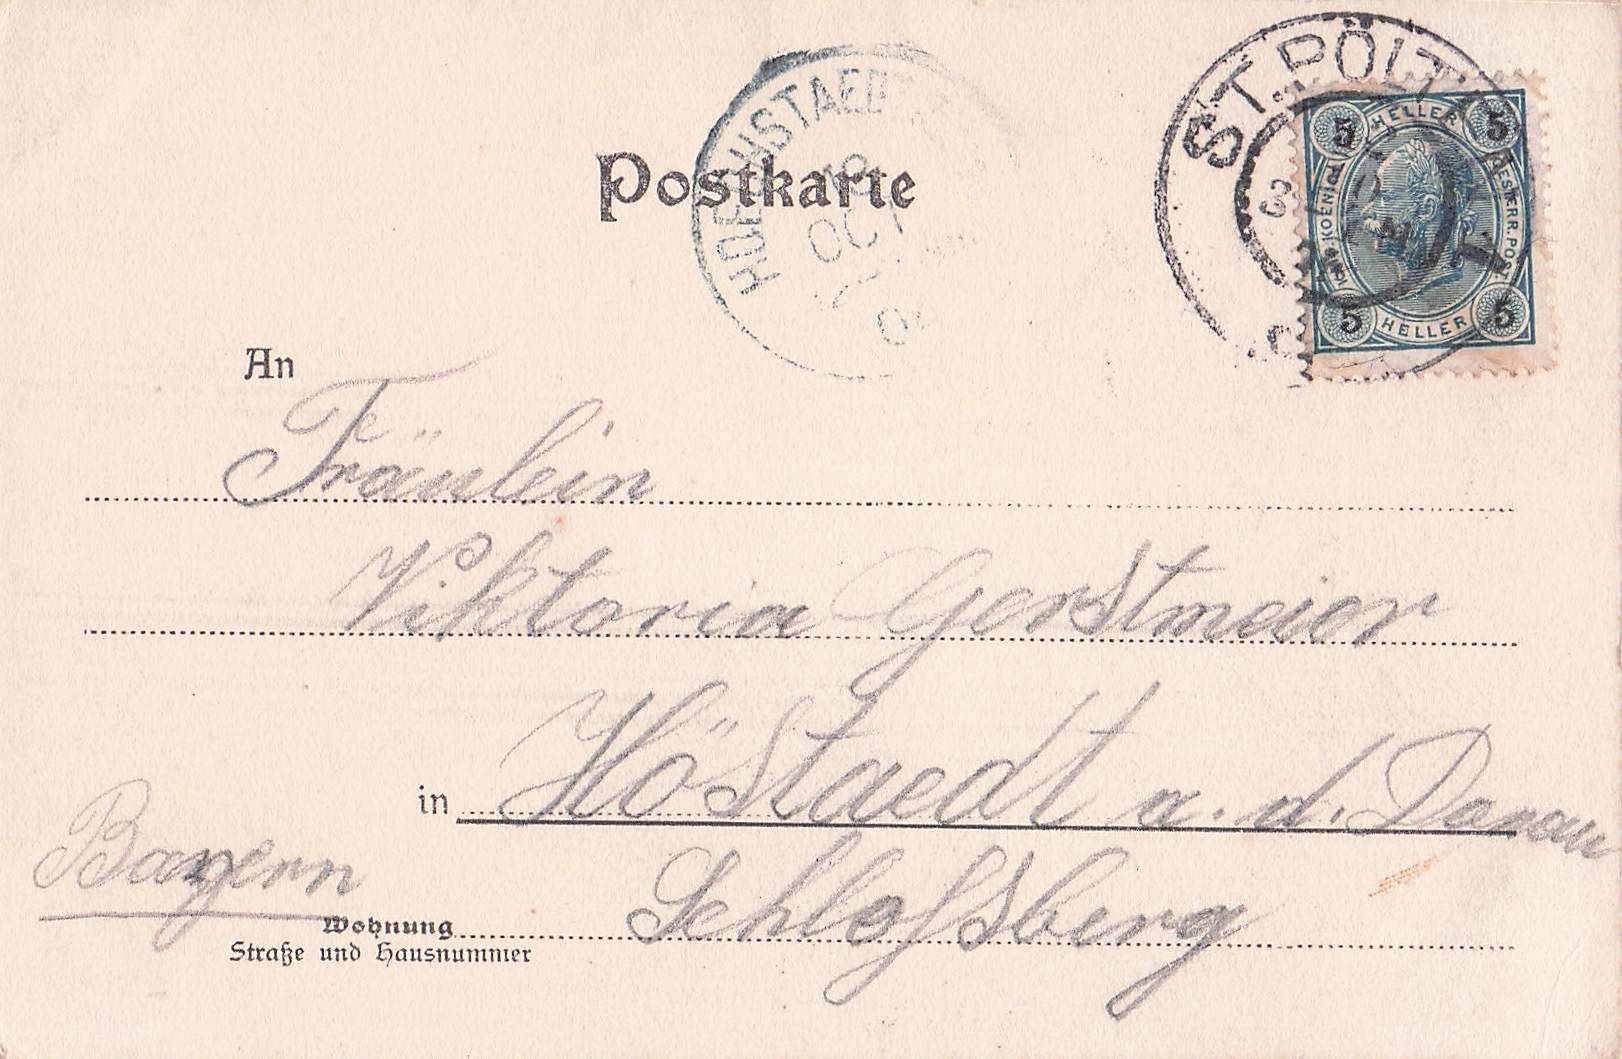 Postkarte
ST. PÖLTEN
HOECHSTAEDT
OCT
5 HELLER 5
KAIS. KOENIGL. OESTERR. POST.
5 HELLER 5
An
Fräulein
Viktoria Gerstmeier
in Höstaedt a. d. Donau
Bayern
Wohnung Schloſsberg
Straße und Hausnummer